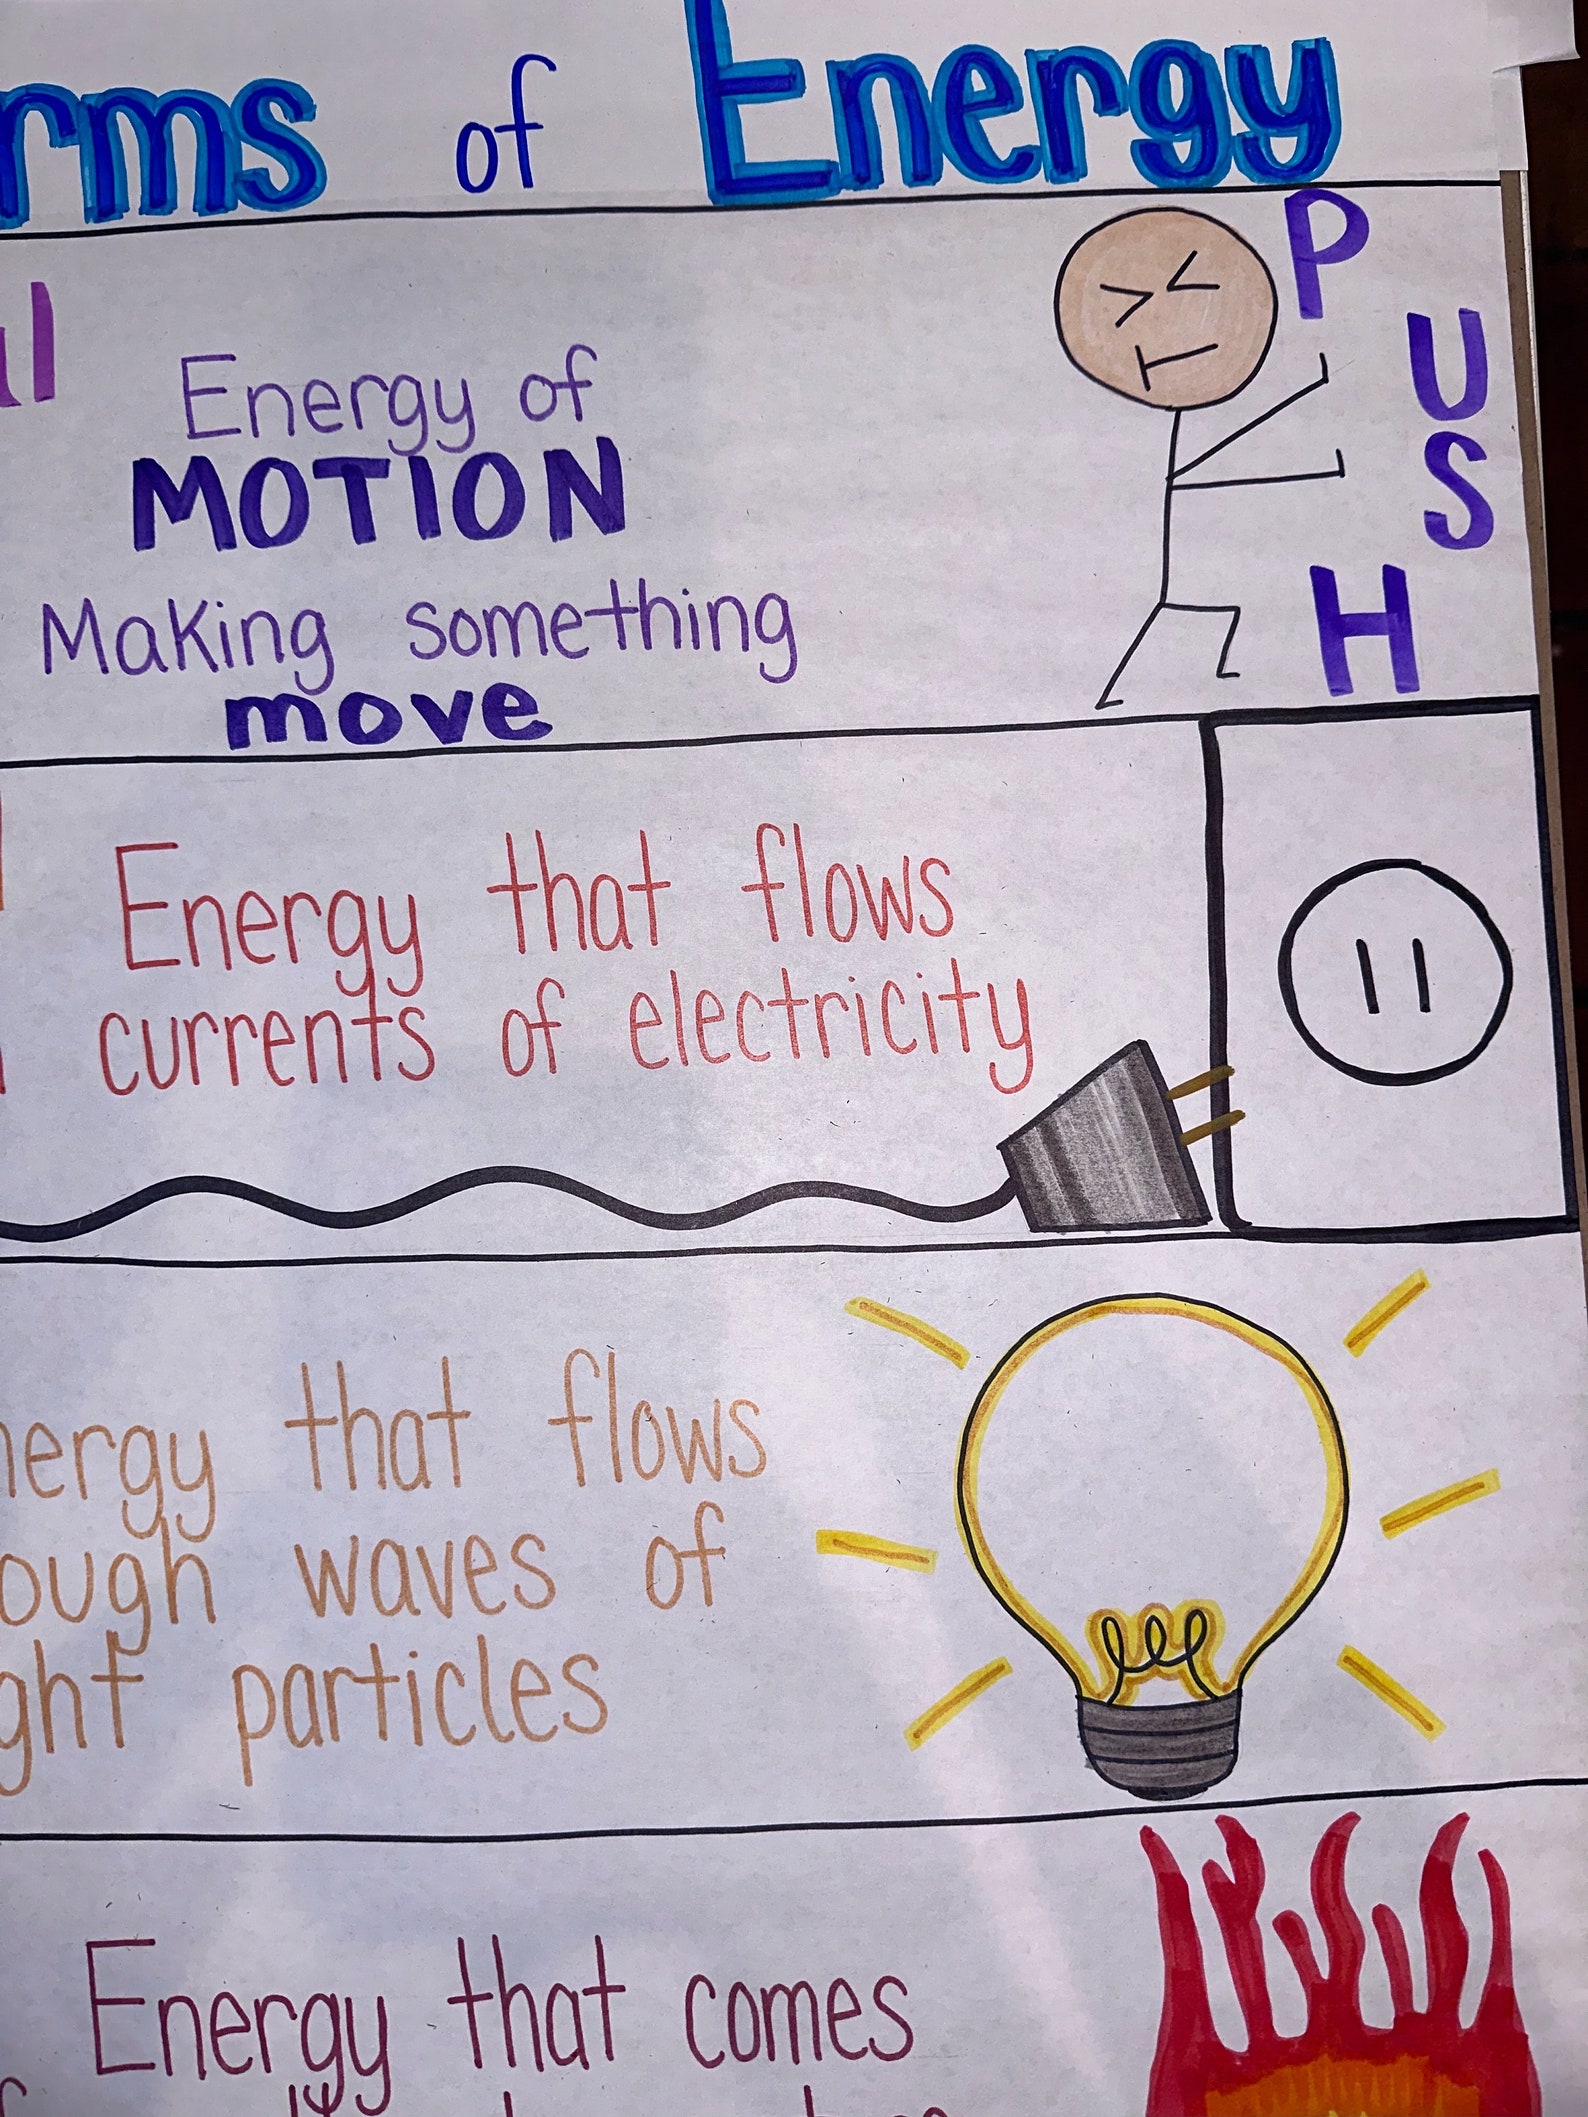 rms of Energy
al
Energy of
MOTION
Making something
move
PUSH
Energy that flows
currents of electricity
nergy that flows
ough waves of
ght particles
Energy that comes